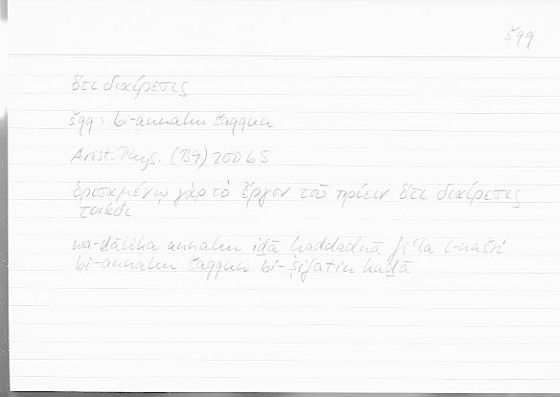 šqq
ὅτι διαίρεσις
šqq: bi-annahu šaqqun
Arist. Phys. (B9) 200 b5
ὁρισαμένῳ γὰρ τὸ ἔργον τοῦ πρίειν ὅτι διαίρεσις
τοιαδί
wa-ḏālika annahu iḏā ḥaddadnā fiʿla l-našri
bi-annahu šaqqun bi-ṣifatin kaḏā